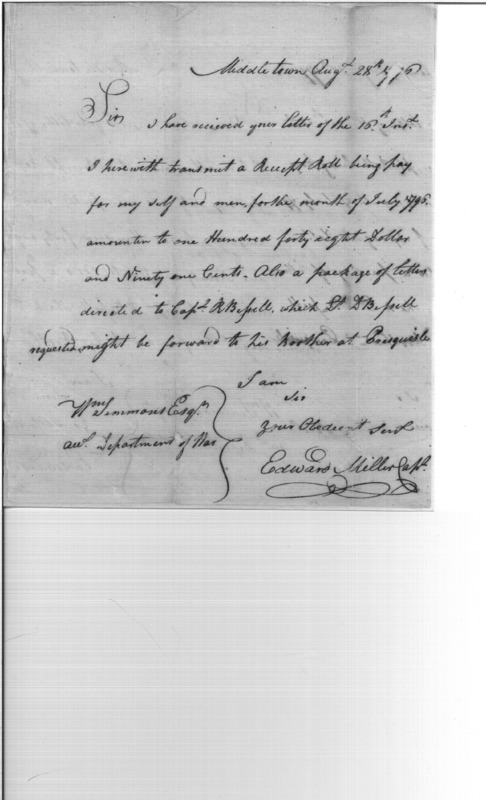 Middletown Augt. 28th 1796
Sir
I have received your letter of the 16th Inst.
I herewith transmit a Receipt Roll being pay
for my self and men, for the month of July 1796.
amounten to one Hundred forty eight Dollar
and Ninety one Cents. Also a package of letters
directed to Capt. R Bissell, which Lt. D Bissell
requested might be forward to his brother at
I am
Sir
your Obedient Servt
Edward Miller Capt.
Wm Simmons Esqr.
Department of War